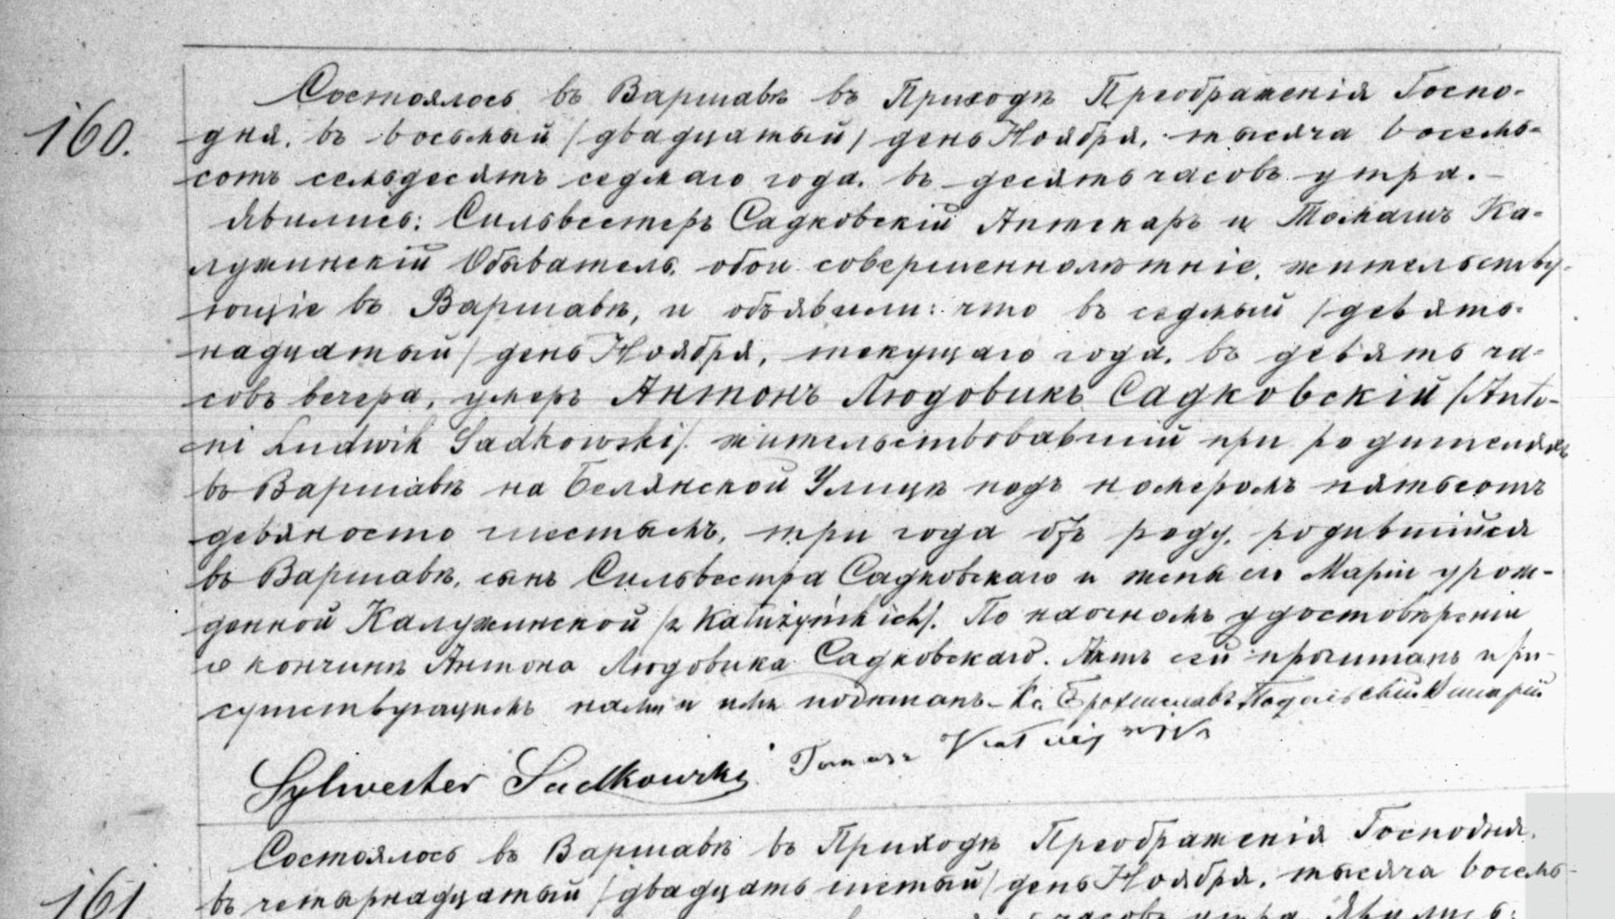 160.
Состоялось въ Варшавѣ въ Приходѣ Преображенія Госпо-
дня, въ восьмый /двадцатый/ день Ноября, тысяча восемь-
сотъ семьдесятъ седмаго года, въ десять часовъ утра.-
Явились: Сильвестеръ Садковскій Аптекарь и Томашъ Ка-
лужинскій Обыватель, обои совершеннолѣтніе, жительству-
ющіе въ Варшавѣ, и объявили: что въ седмый /девять-
надцатый/ день Ноября, текущаго года, въ девять ча-
совъ вечера, умеръ Антонъ Людовикъ Садковскій /Anto-
ni Ludwik Sadkowski/. жительствовавшій при родителяхъ
въ Варшавѣ на Белянской Улицѣ подъ номеромъ пятьсотъ
девяносто шестымъ, три года отъ роду, родившійся
въ Варшавѣ, сынъ Сильвестра Садковскаго и жены его Маріи урож-
денной Калужинской /z Kałużyńskich/. По наочномъ удостовѣреніи
о кончинѣ Антона Людовика Садковскаго. Актъ сей прочитанъ при-
сутствующимъ нами и ими подписанъ.- Кс.
Sylwester Sadkowski Tomasz
161.
Состоялось въ Варшавѣ въ Приходѣ Преображенія Господня,
въ четырнадцатый /двадцать шестый/ день Ноября, тысяча восемь-
часовъ утра. Явились: